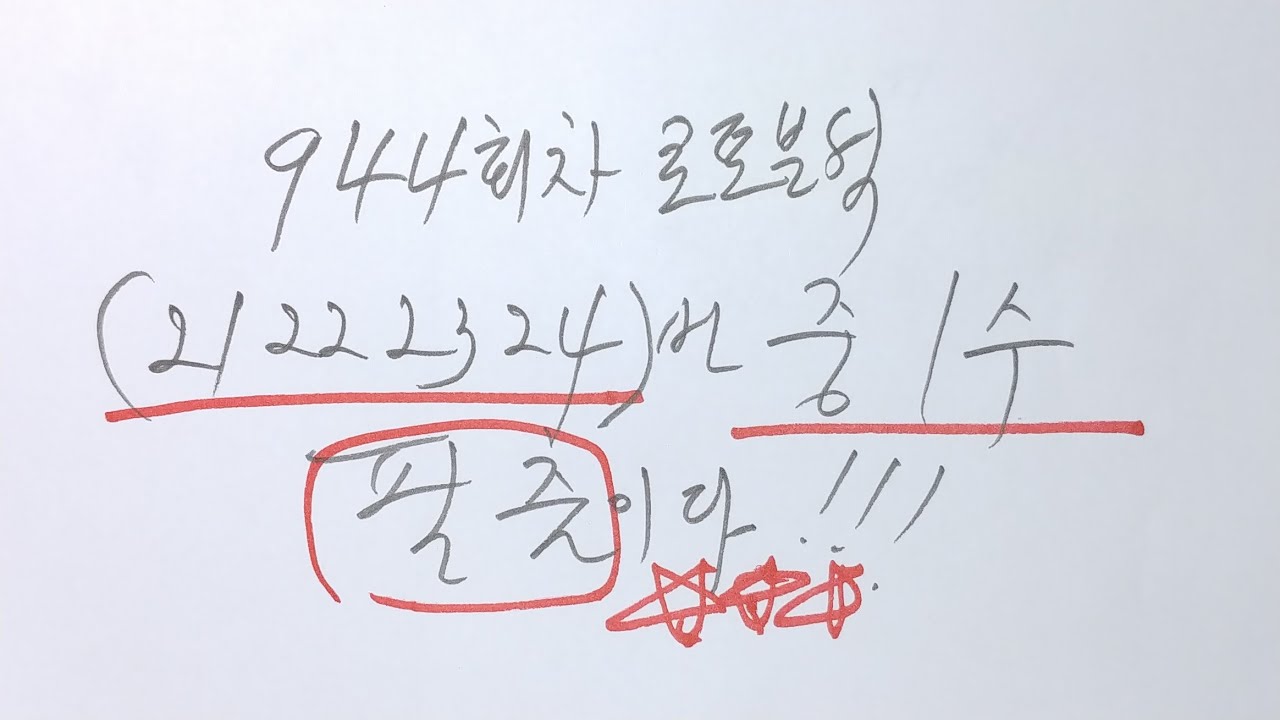 944회차 로또분석
(21 22 23 24)번 중 1수
필출이다!!!